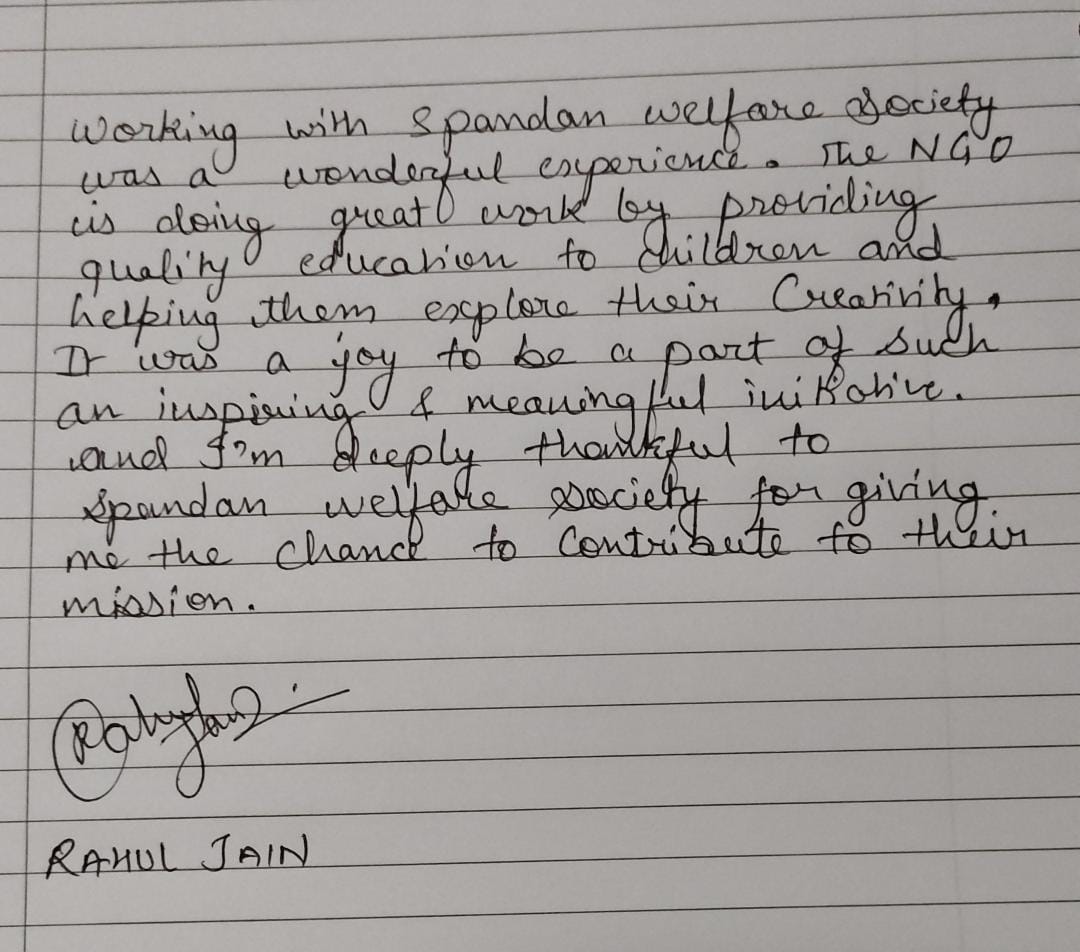 Working with Spandan welfare Society
was a wonderful experience. The NGO
is doing great work by providing
quality education to children and
helping them explore their Creativity.
It was a joy to be a part of such
an inspiring & meaningful initiative.
and I'm deeply thankful to
Spandan welfare society for giving
me the chance to Contribute to their
mission.
Rahul Jain
RAHUL JAIN